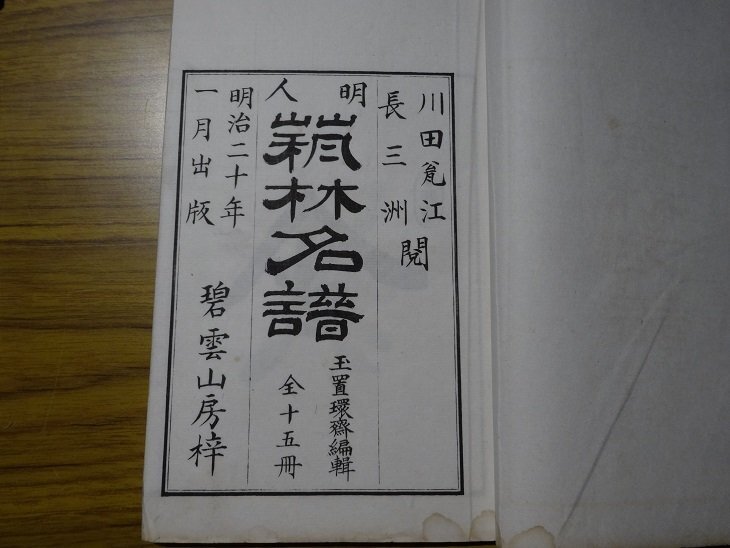 川田瓮江
長三洲
閲
明人
萟林名譜
玉置環齋編輯
全十五冊
明治二十年
一月出版
碧雲山房梓